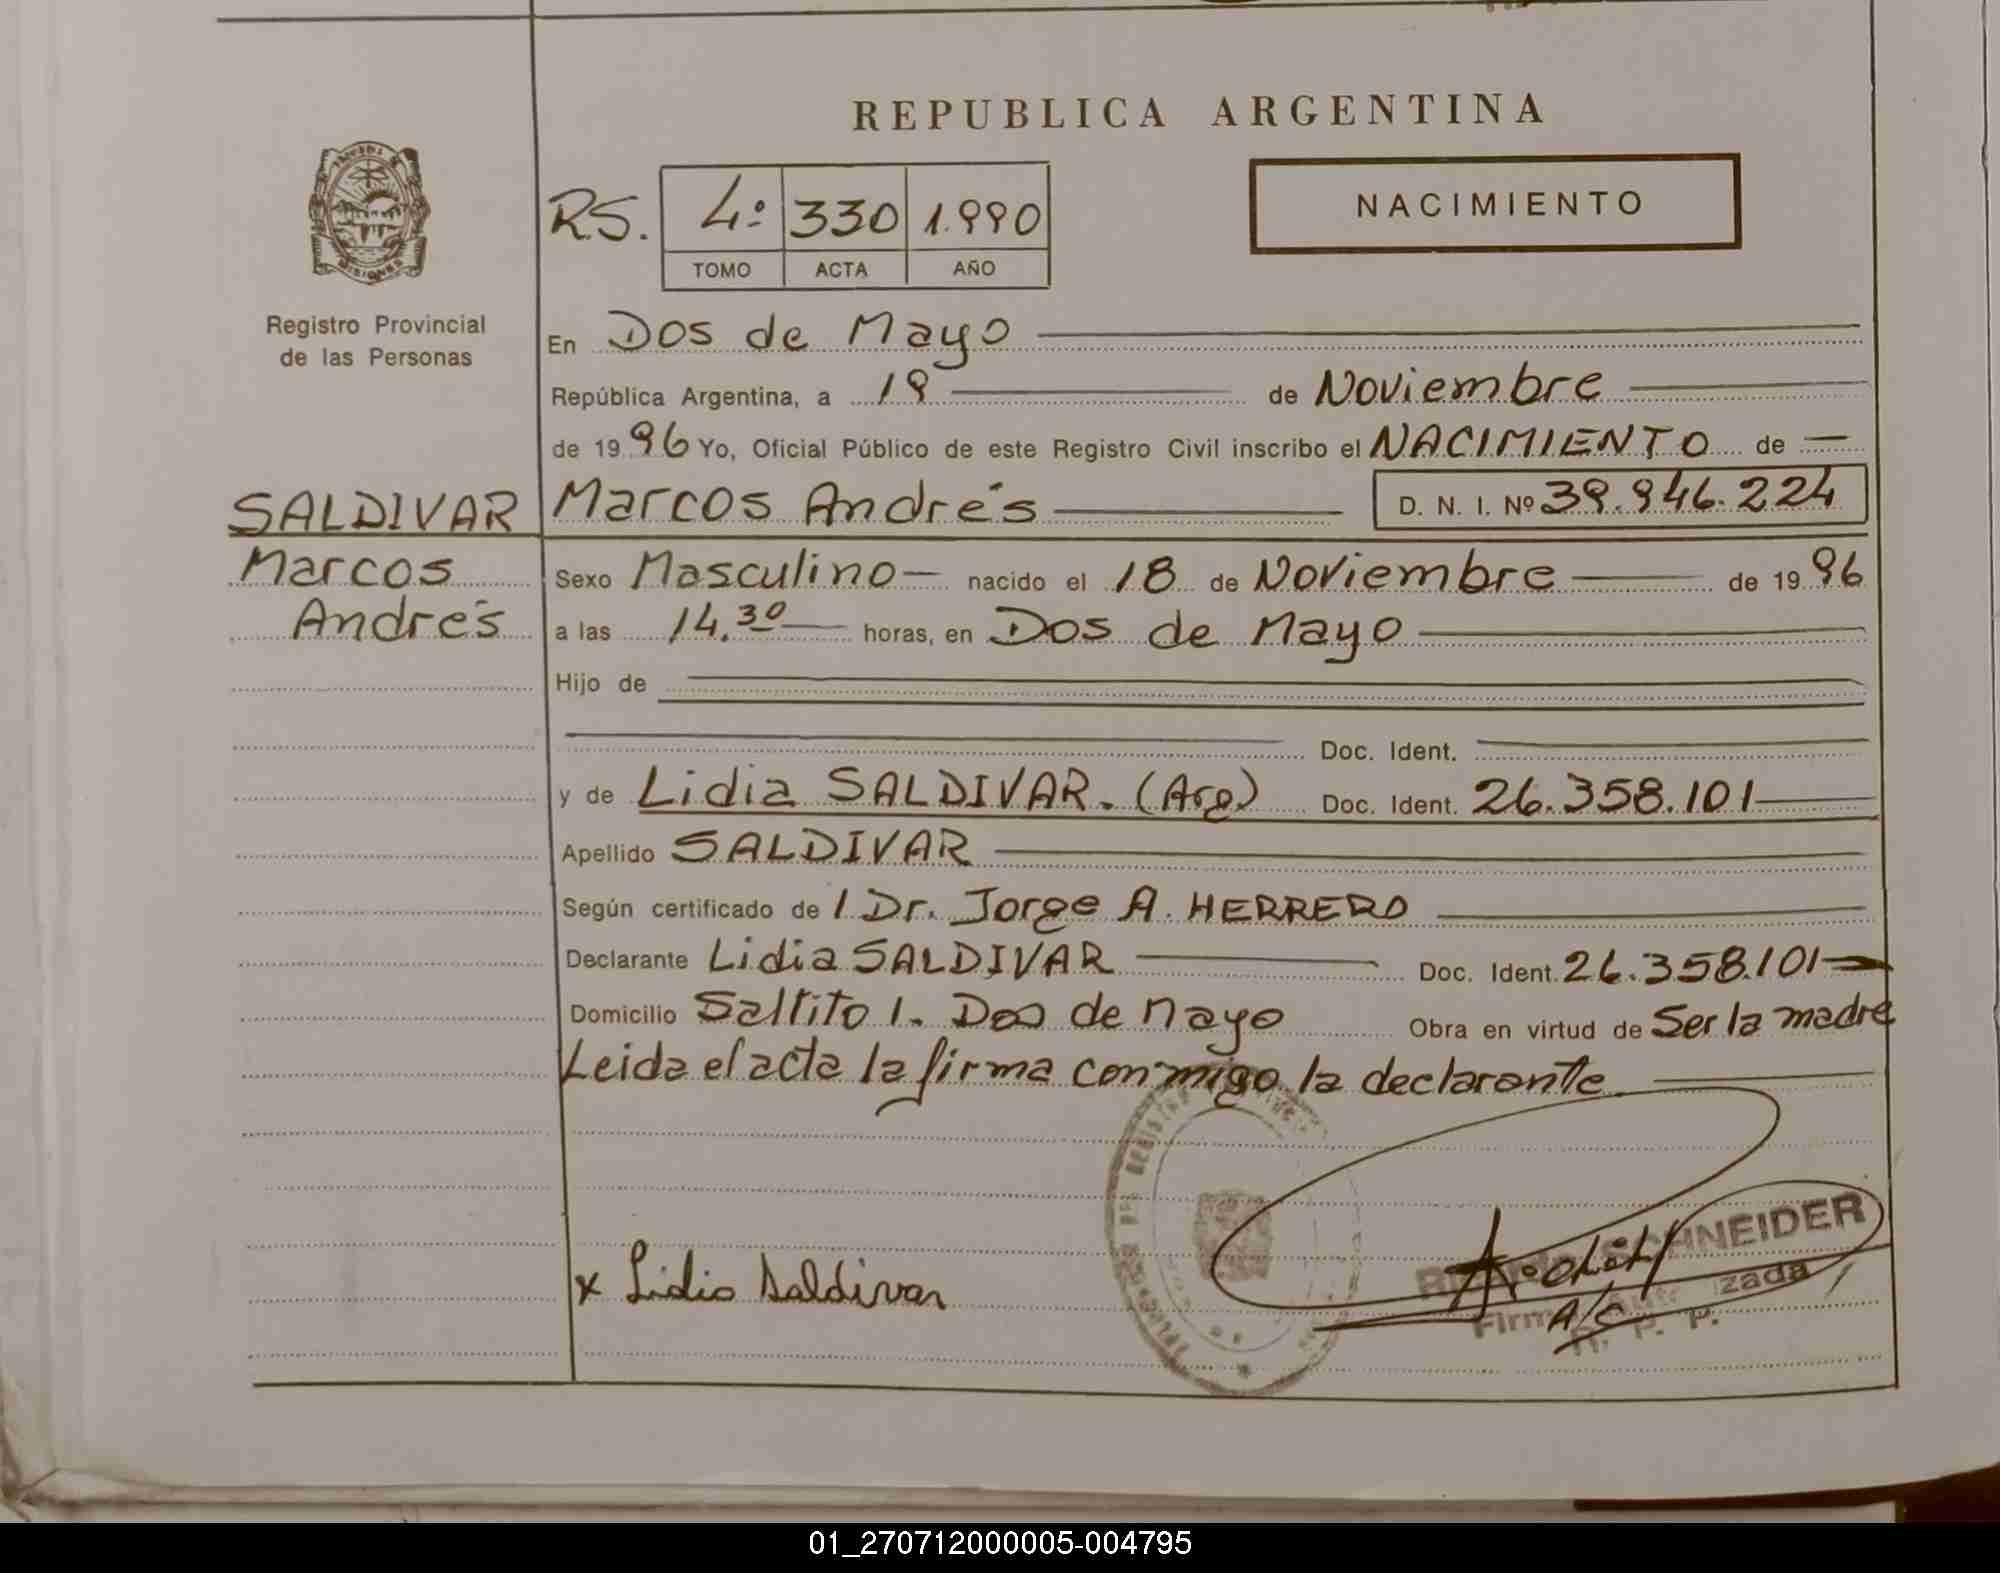 REPUBLICA ARGENTINA
MISIONES
Registro Provincial
de las Personas
NACIMIENTO
RS. 4º 330 1.990
TOMO ACTA AÑO
En Dos de Mayo
República Argentina, a 19 de Noviembre
de 19 96 Yo, Oficial Público de este Registro Civil inscribo el NACIMIENTO de
SALDIVAR Marcos Andrés D. N. I. Nº 39.946.224
Marcos
Andrés
Sexo Masculino nacido el 18 de Noviembre de 19 96
a las 14.30 horas, en Dos de Mayo
Hijo de
Doc. Ident.
y de Lidia SALDIVAR. (Arg) Doc. Ident. 26.358.101
Apellido SALDIVAR
Según certificado de / Dr. Jorge A. HERRERO
Declarante Lidia SALDIVAR Doc. Ident. 26.358.101
Domicilio Saltito 1. Dos de Mayo Obra en virtud de Ser la madre
Leida el acta la firma conmigo la declarante
x Lidia Saldivar
SCHNEIDER
Firma Autorizada
A/C
R. P. P.
01_270712000005-004795